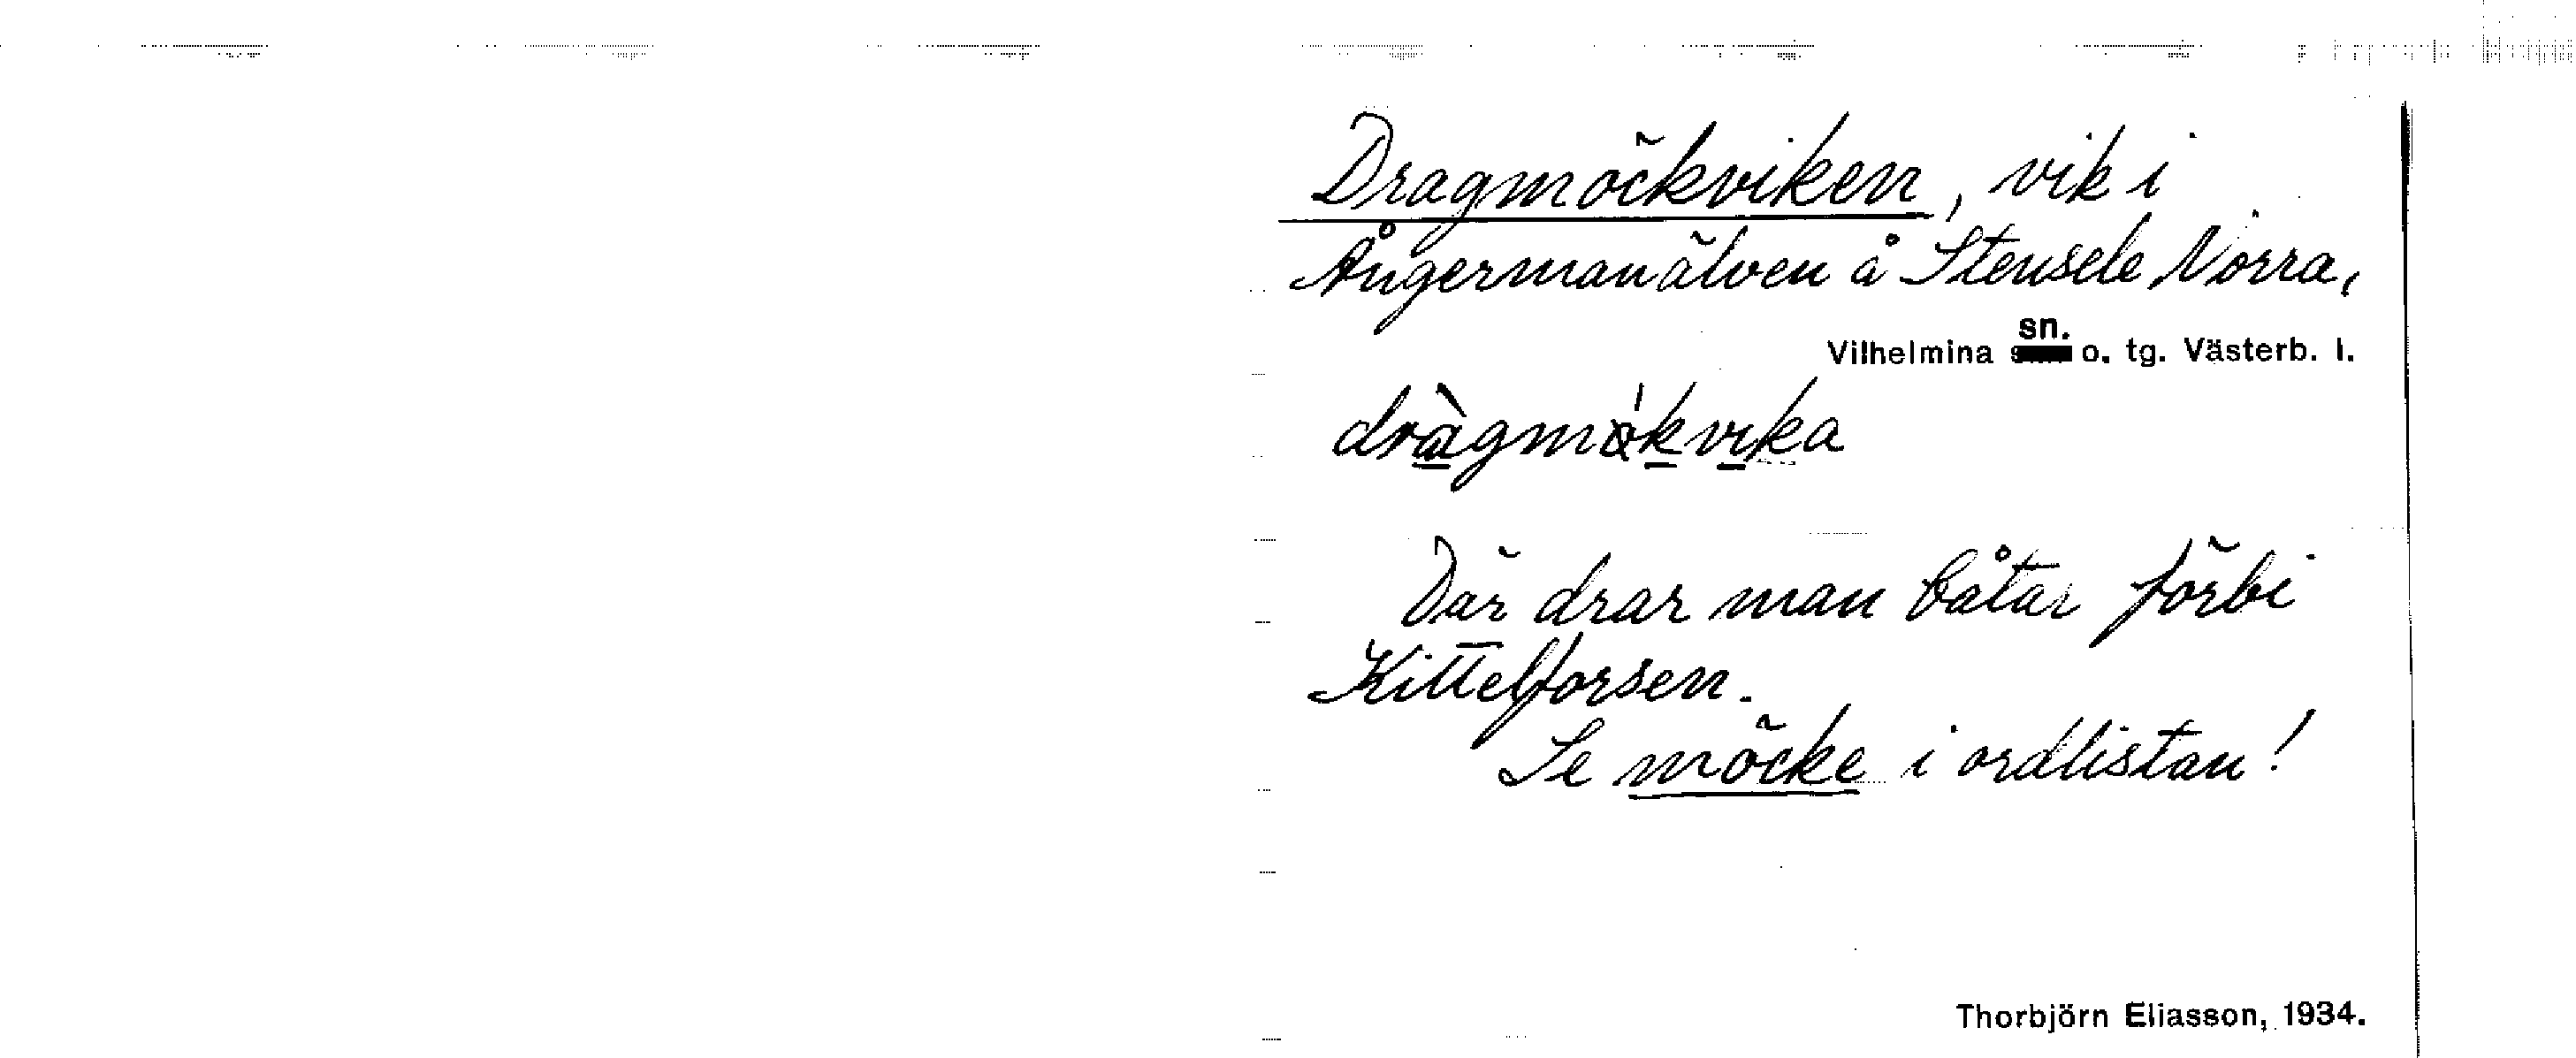 Dragmöckviken, vik i
Ångermanälven å Stensele Norra,
Vilhelmina sn. o. tg. Västerb. l.
Där drar man båtar förbi
Kittelforsen.
Se möcke i ordlistan!
Thorbjörn Eliasson, 1934.